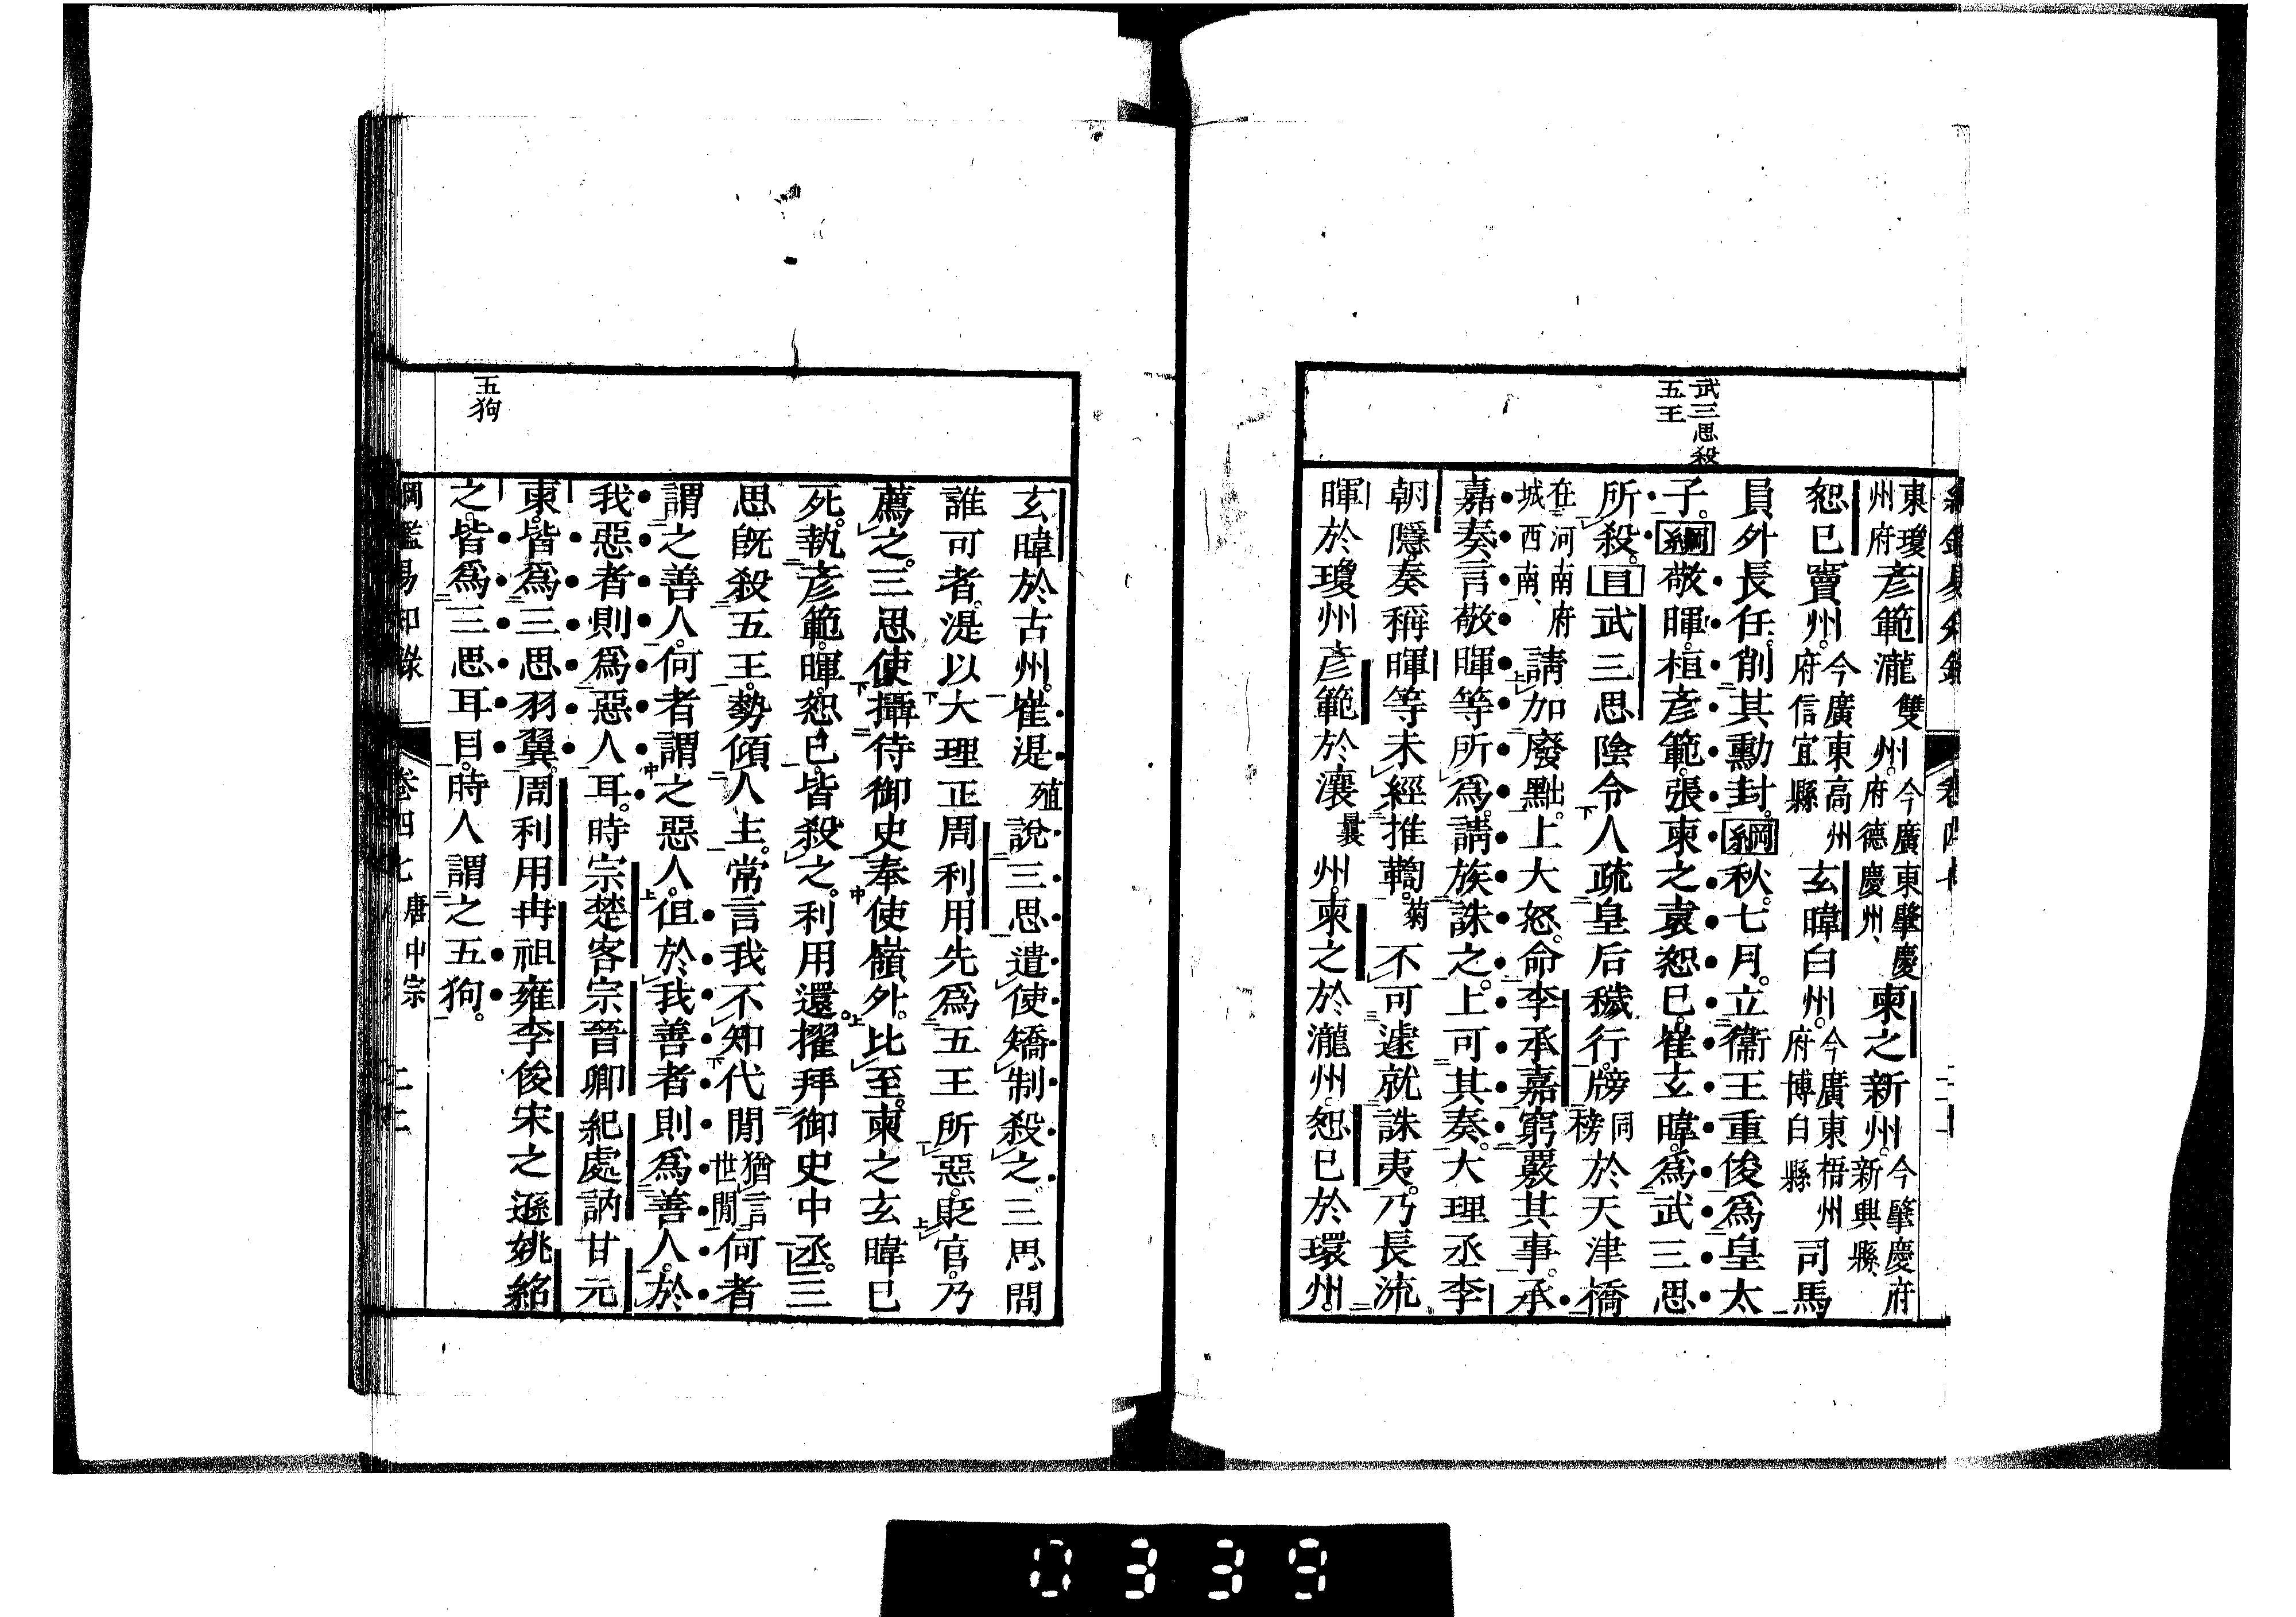 武三思殺
五王
東瓊州府彥範瀧雙州。今廣東肇慶府德慶州、柬之新州。今肇慶府新興縣、
恕已竇州。今廣東高州府信宜縣玄暐白州。今廣東梧州府博白縣司馬
員外長任。削其勳封。綱秋。七月。立衞王重俊爲皇太
子。綱敬暉。桓彥範。張柬之袁恕已。崔玄暐。爲武三思
所殺。目武三思陰令人疏皇后穢行。牓同榜於天津橋
在河南府城西南、請加廢黜。上大怒。命李承嘉窮覈其事。承
嘉奏。言敬暉等所爲。請族誅之。上可其奏。大理丞李
朝隱。奏稱暉等未經推鞫。菊不可遽就誅夷。乃長流
暉於瓊州彥範於瀼曩州。柬之於瀧州。恕已於環州。
玄暐於古州。崔湜殖說三思遣使矯制殺之。三思問
誰可者。湜以大理正周利用先爲五王所惡。貶官。乃
薦之。三思使攝侍御史奉使嶺外。比至。柬之玄暐已
死。執彥範。暉。恕已。皆殺之。利用還。擢拜御史中丞。三
思旣殺五王。勢傾人主。常言我不知代閒猶言世閒何者
謂之善人。何者謂之惡人。但於我善者則爲善人。於
我惡者則爲惡人耳。時宗楚客宗晉卿紀處訥甘元
柬。皆爲三思羽翼。周利用冉祖雍李俊宋之遜姚紹
之。皆爲三思耳目。時人謂之五狗。
五狗
綱鑑易知錄 卷四七 唐中宗